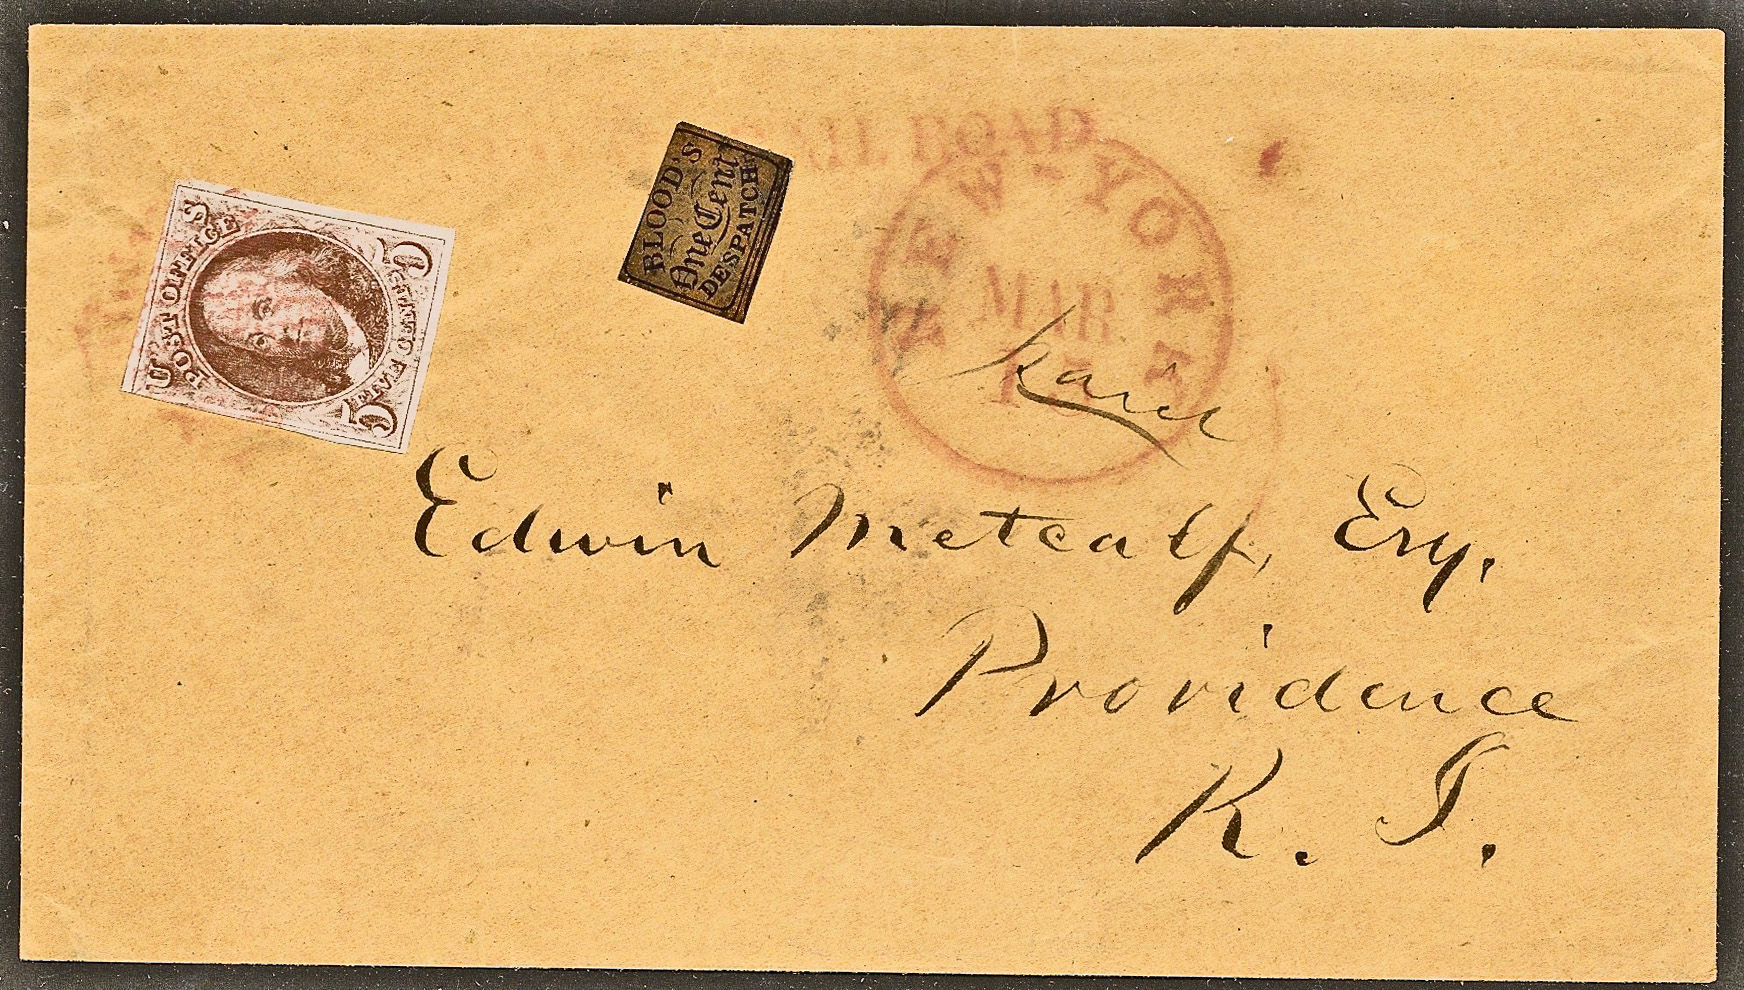 RAIL ROAD
U POST OFFICE S
5 CENTS
FIVE 5
BLOOD'S
One Cent
DESPATCH
NEW-YORK
MAR
15
Paid
Edwin Metcalf, Esq.
Providence
R. I.